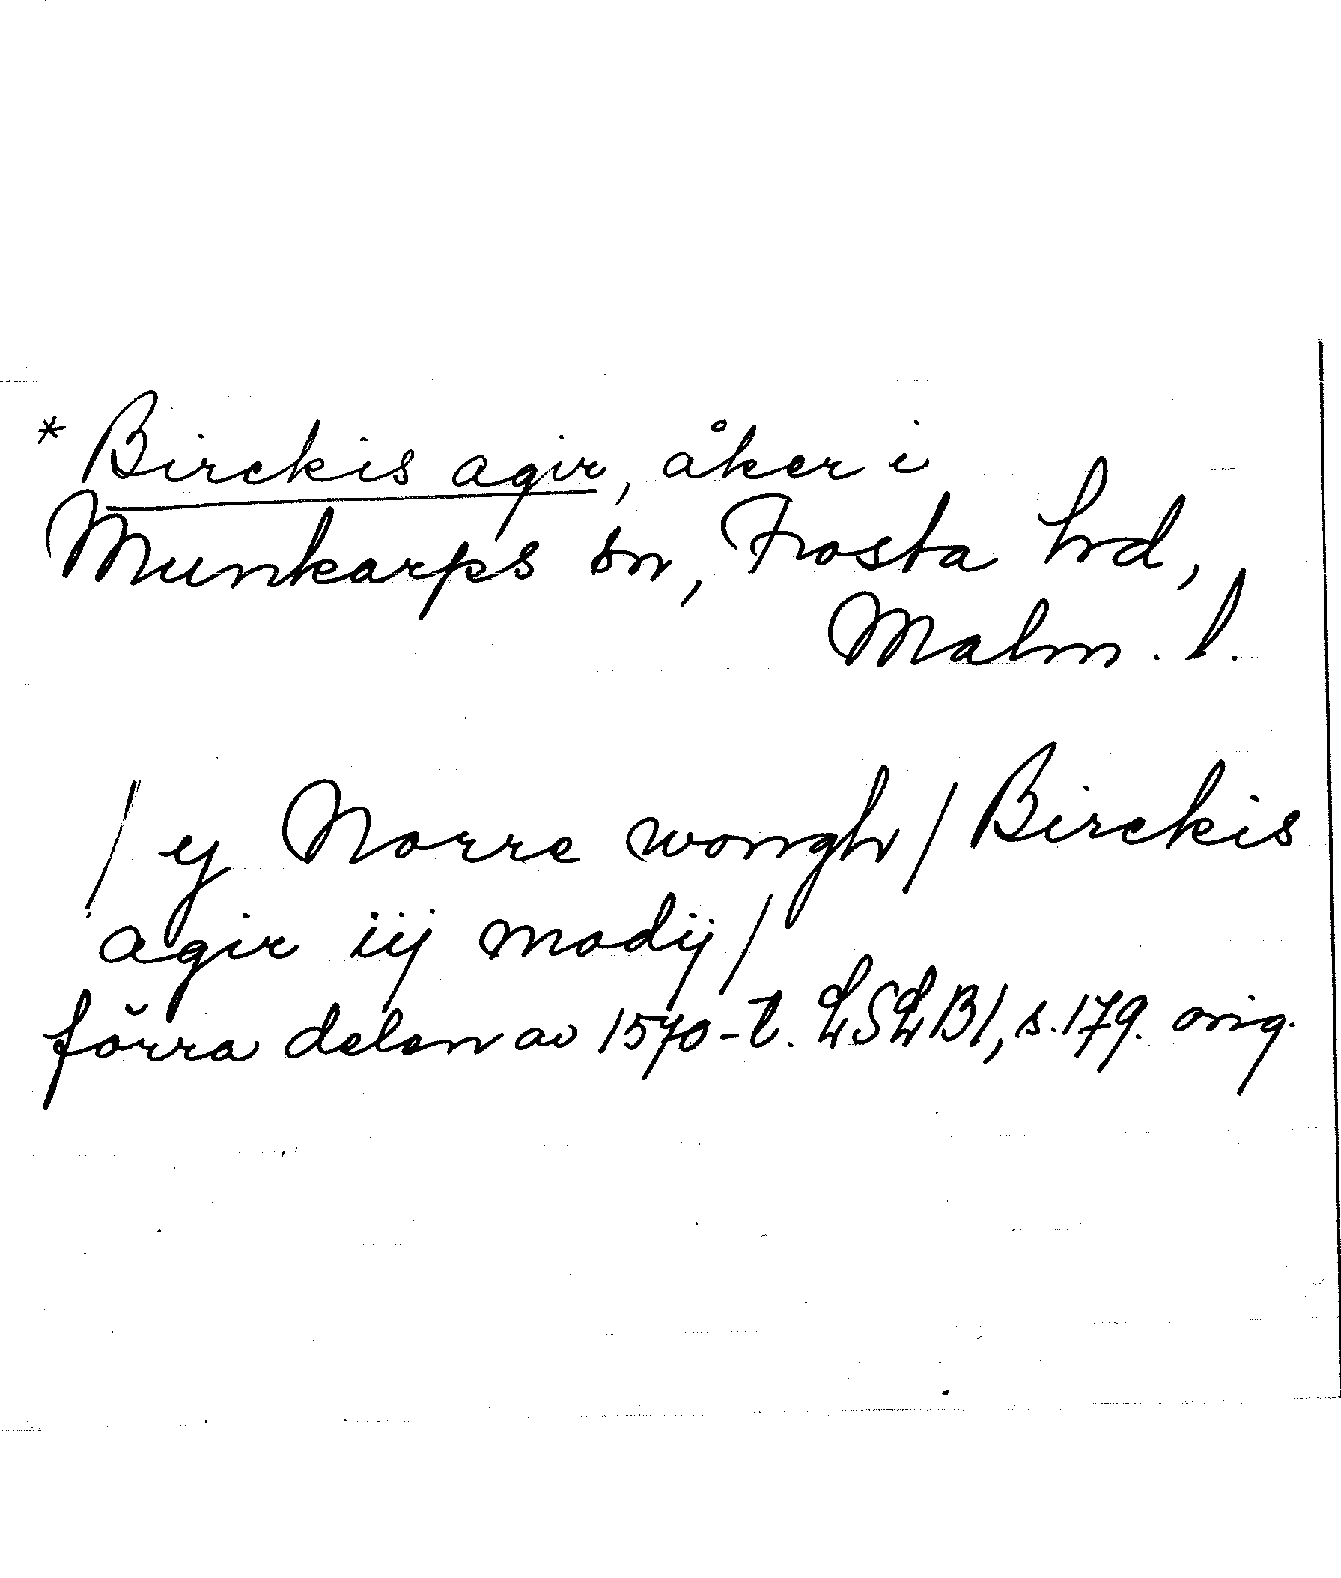 * Birckis agir, åker i
Munkarps sn, Frosta hd,
Malm. l.
/ ej Norre wongh / Birckis
agir iij modij /
förra delen av 1570-t. LSLB1, s. 179. orig.